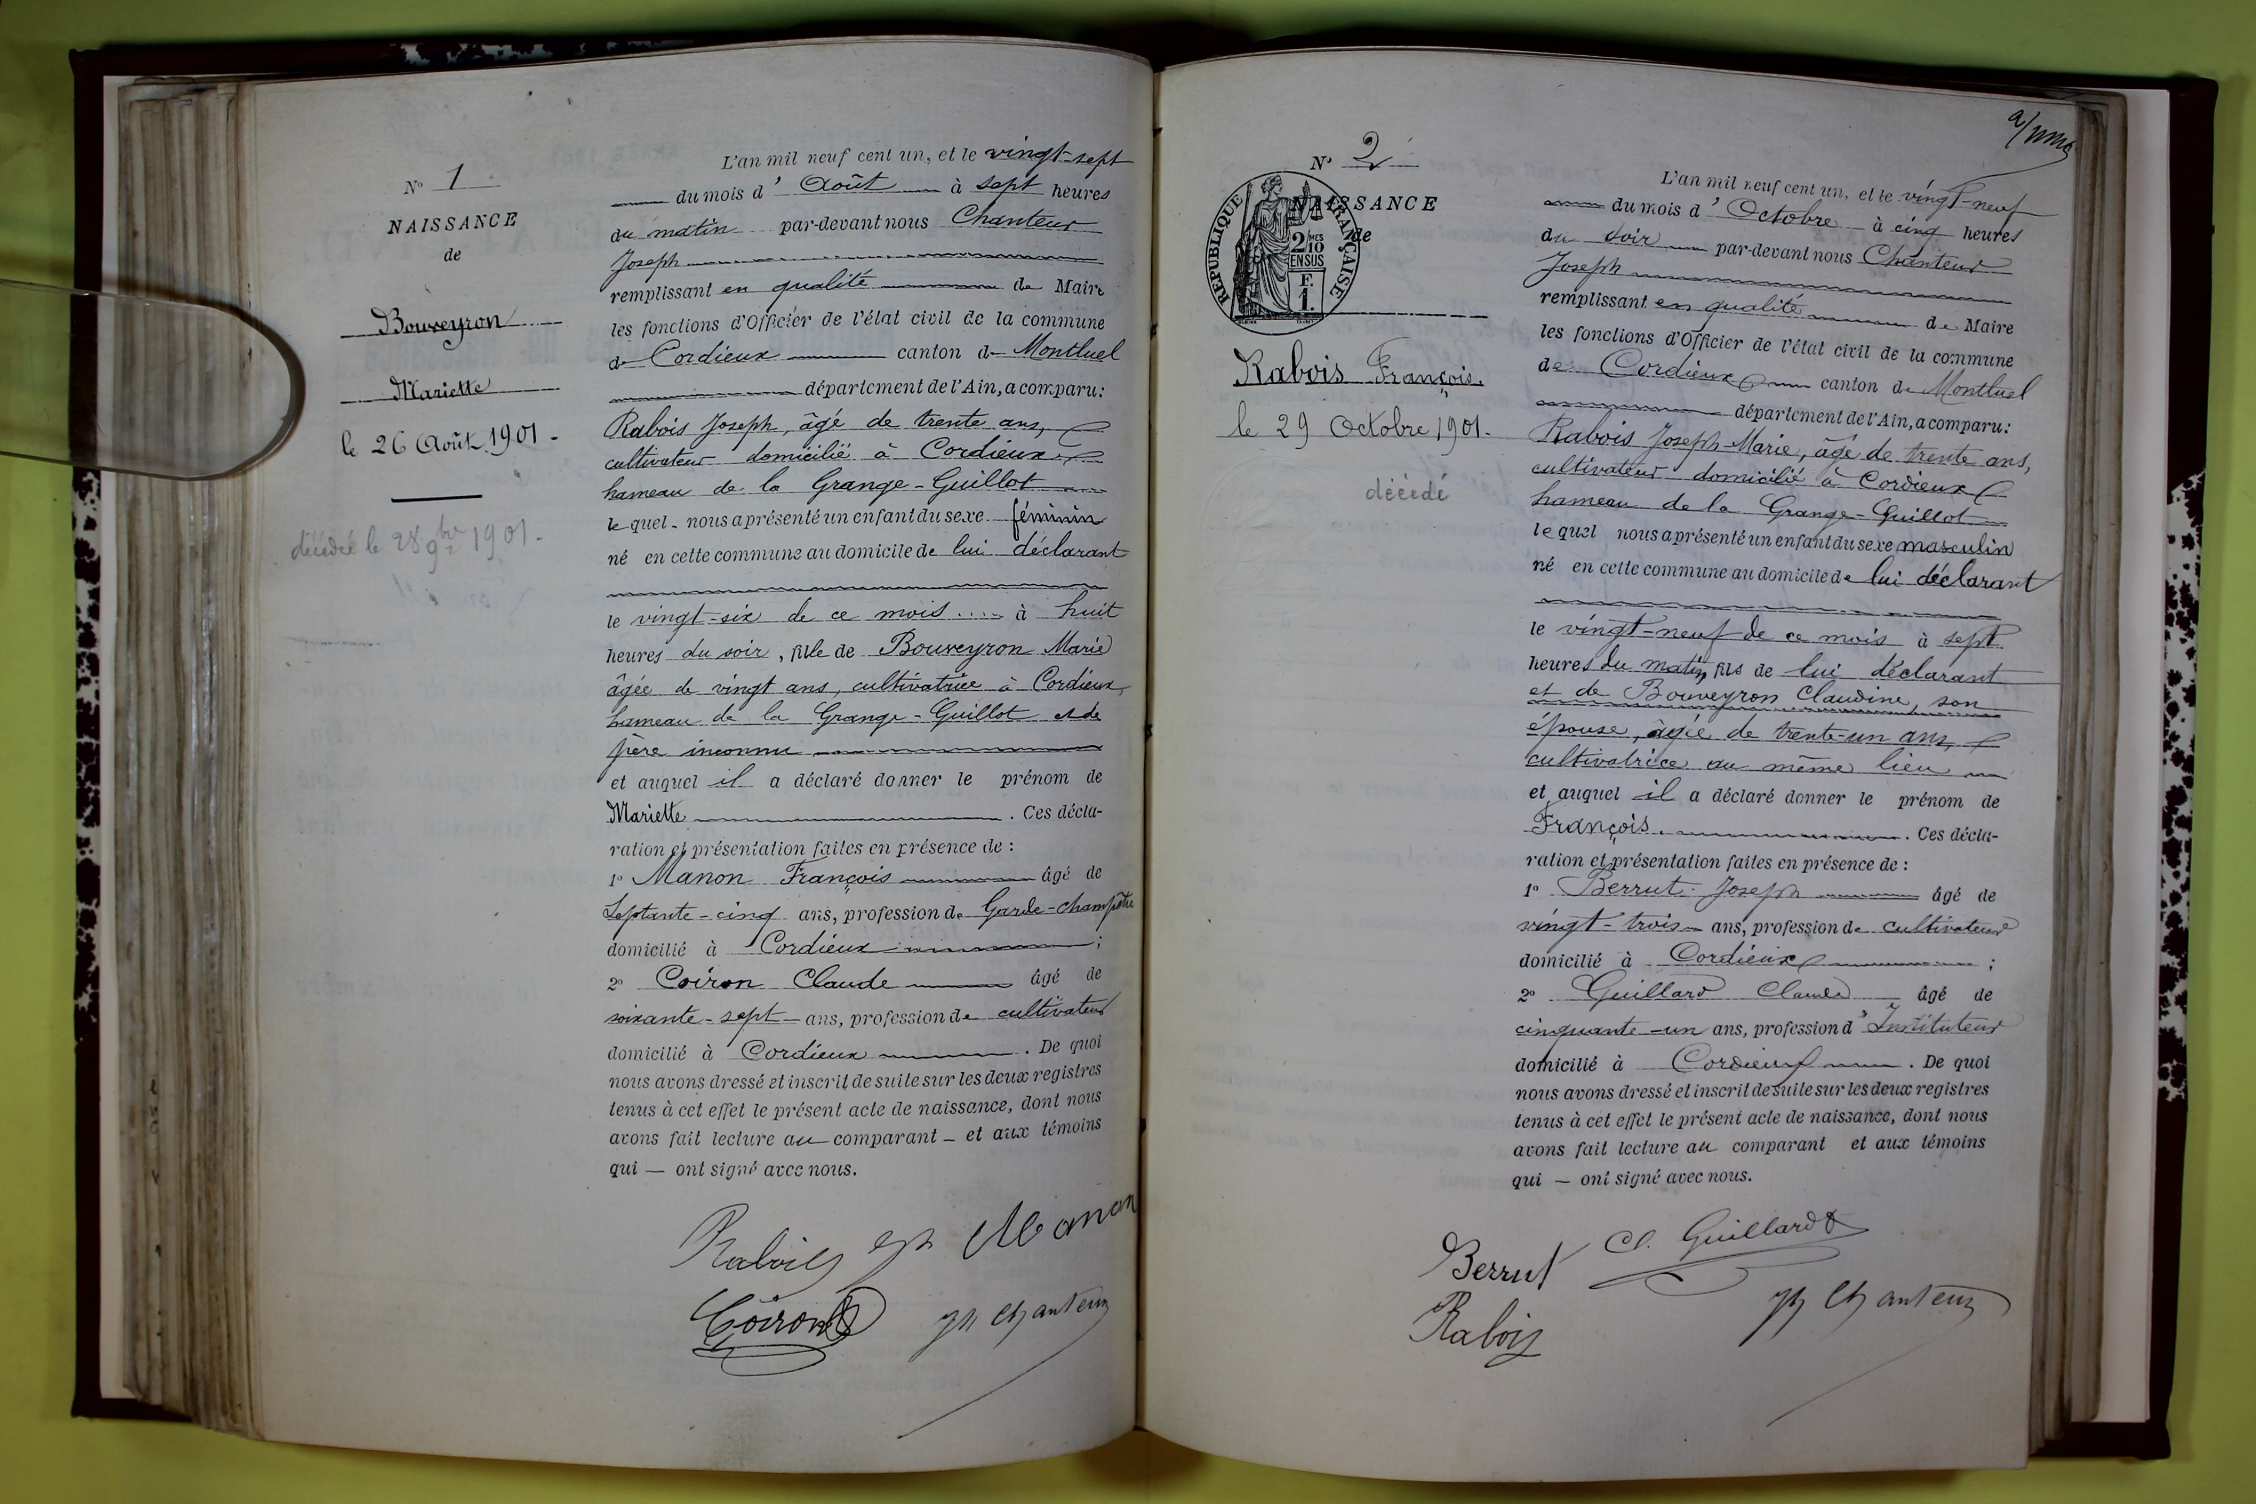 N° 1
NAISSANCE
de
Bouveyron
Mariette
le 26 Août 1901.
décédée le 28 9bre 1901.
L'an mil neuf cent un, et le vingt-sept
du mois d' Août à sept heures
du matin par-devant nous Chanteur
Joseph
remplissant en qualité de Maire
les fonctions d'Officier de l'état civil de la commune
de Cordieux canton de Montluel
département de l'Ain, a comparu:
Rabois Joseph, âgé de trente ans,
cultivateur domicilié à Cordieux
hameau de la Grange-Guillot
lequel nous a présenté un enfant du sexe féminin
né en cette commune au domicile de lui déclarant
le vingt-six de ce mois à huit
heures du soir, fille de Bouveyron Marie
âgée de vingt ans, cultivatrice à Cordieux,
hameau de la Grange-Guillot et de
père inconnu
et auquel il a déclaré donner le prénom de
Mariette. Ces décla-
ration et présentation faites en présence de :
1° Manon François âgé de
Septante-cinq ans, profession de Garde-champêtre
domicilié à Cordieux ;
2° Coiron Claude âgé de
soixante-sept ans, profession de cultivateur
domicilié à Cordieux. De quoi
nous avons dressé et inscrit de suite sur les deux registres
tenus à cet effet le présent acte de naissance, dont nous
avons fait lecture au comparant et aux témoins
qui — ont signé avec nous.
Rabois Manon
Coiron Jh Chanteur
N° 2
NAISSANCE
de
REPUBLIQUE FRANÇAISE
2/10 MES
EN SUS
F.
1.
Rabois François.
le 29 Octobre 1901.
décédé
L'an mil neuf cent un, et le vingt-neuf
du mois d' Octobre à cinq heures
du soir par-devant nous Chanteur
Joseph
remplissant en qualité de Maire
les fonctions d'Officier de l'état civil de la commune
de Cordieux canton de Montluel
département de l'Ain, a comparu:
Rabois Joseph-Marie, âgé de trente ans,
cultivateur domicilié à Cordieux
hameau de la Grange-Guillot
lequel nous a présenté un enfant du sexe masculin
né en cette commune au domicile de lui déclarant
le vingt-neuf de ce mois à sept
heures du matin, fils de lui déclarant
et de Bouveyron Claudine, son
épouse, âgée de trente-un ans,
cultivatrice au même lieu
et auquel il a déclaré donner le prénom de
François. Ces décla-
ration et présentation faites en présence de :
1° Berrut Joseph âgé de
vingt-trois ans, profession de cultivateur
domicilié à Cordieux ;
2° Guillard Claude âgé de
cinquante-un ans, profession d' Instituteur
domicilié à Cordieux. De quoi
nous avons dressé et inscrit de suite sur les deux registres
tenus à cet effet le présent acte de naissance, dont nous
avons fait lecture au comparant et aux témoins
qui — ont signé avec nous.
Berrut Cl. Guillard
Rabois Jh Chanteur